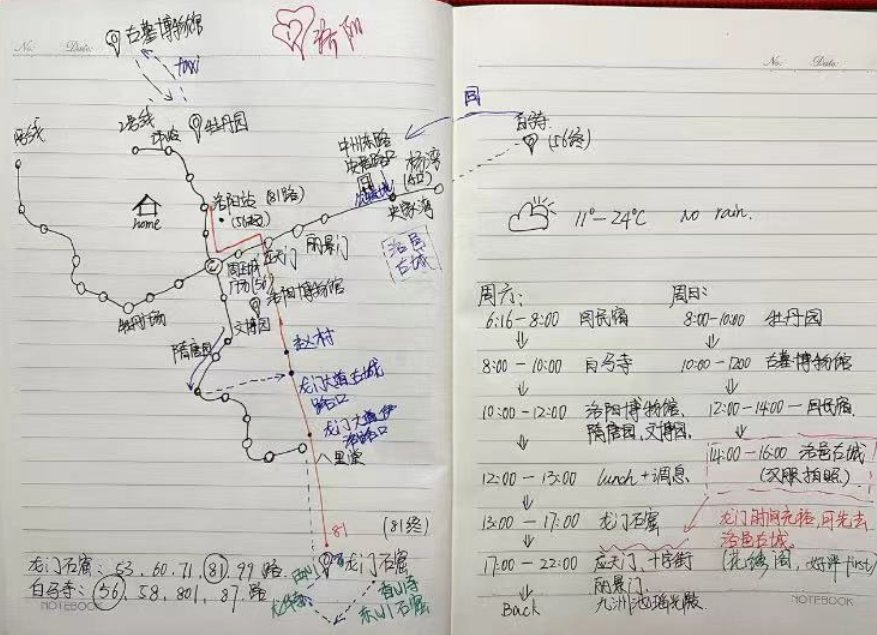 No.
Date.
洛阳
古墓博物馆
taxi
2号线
牡丹园
1号线
洛阳站 (81路)
(56起)
home
周王城
广场(56)
应天门
丽景门
中州东路
杨湾
史家湾
洛邑
古城
回
白马寺
(56终)
洛阳博物馆
文博园
隋唐园
牡丹广场
赵村
龙门大道古城
路口
龙门大道伊
洛路口
八里堂
81
(81终)
龙门石窟
西山
香山寺
东山石窟
龙门石窟: 53、60、71、81、99 路
白马寺: 56、58、801、87、路
NOTEBOOK
No.
Date.
11°-24℃ No rain.
周六:
6:16-8:00 回民宿
8:00-10:00 白马寺
10:00-12:00 洛阳博物馆、
隋唐园、文博园、
12:00-13:00 lunch+调息
13:00-17:00 龙门石窟
17:00-22:00 应天门、十字街
丽景门、
九洲池、瑶光殿
Back
周日:
8:00-10:00 牡丹园
10:00-1200 古墓博物馆
12:00-14:00-回民宿
14:00-16:00 洛邑古城
(汉服拍照)
龙门时间充裕,可先去
洛邑古城
(花绣阁, 好评first)
NOTEBOOK